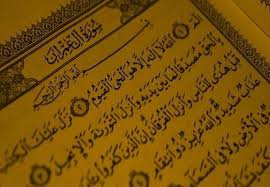 سُورَةُ آلِ عِمْرَانَ
بِسْمِ اللَّهِ الرَّحْمَٰنِ الرَّحِيمِ
الٓمٓ ١ اللَّهُ لَا إِلَٰهَ إِلَّا هُوَ الْحَيُّ الْقَيُّومُ ٢ نَزَّلَ عَلَيْكَ الْكِتَٰبَ
بِالْحَقِّ مُصَدِّقًا لِمَا بَيْنَ يَدَيْهِ وَأَنْزَلَ التَّوْرَىٰةَ وَالْإِنْجِيلَ ٣
قَبْلُ هُدًى لِلنَّاسِ وَأَنْزَلَ الْفُرْقَانَ إِنَّ الَّذِينَ كَفَرُوا
عَذَابٌ شَدِيدٌ وَاللَّهُ عَزِيزٌ ذُو انْتِقَامٍ
الْأَرْضِ وَلَا فِي السَّمَاءِ